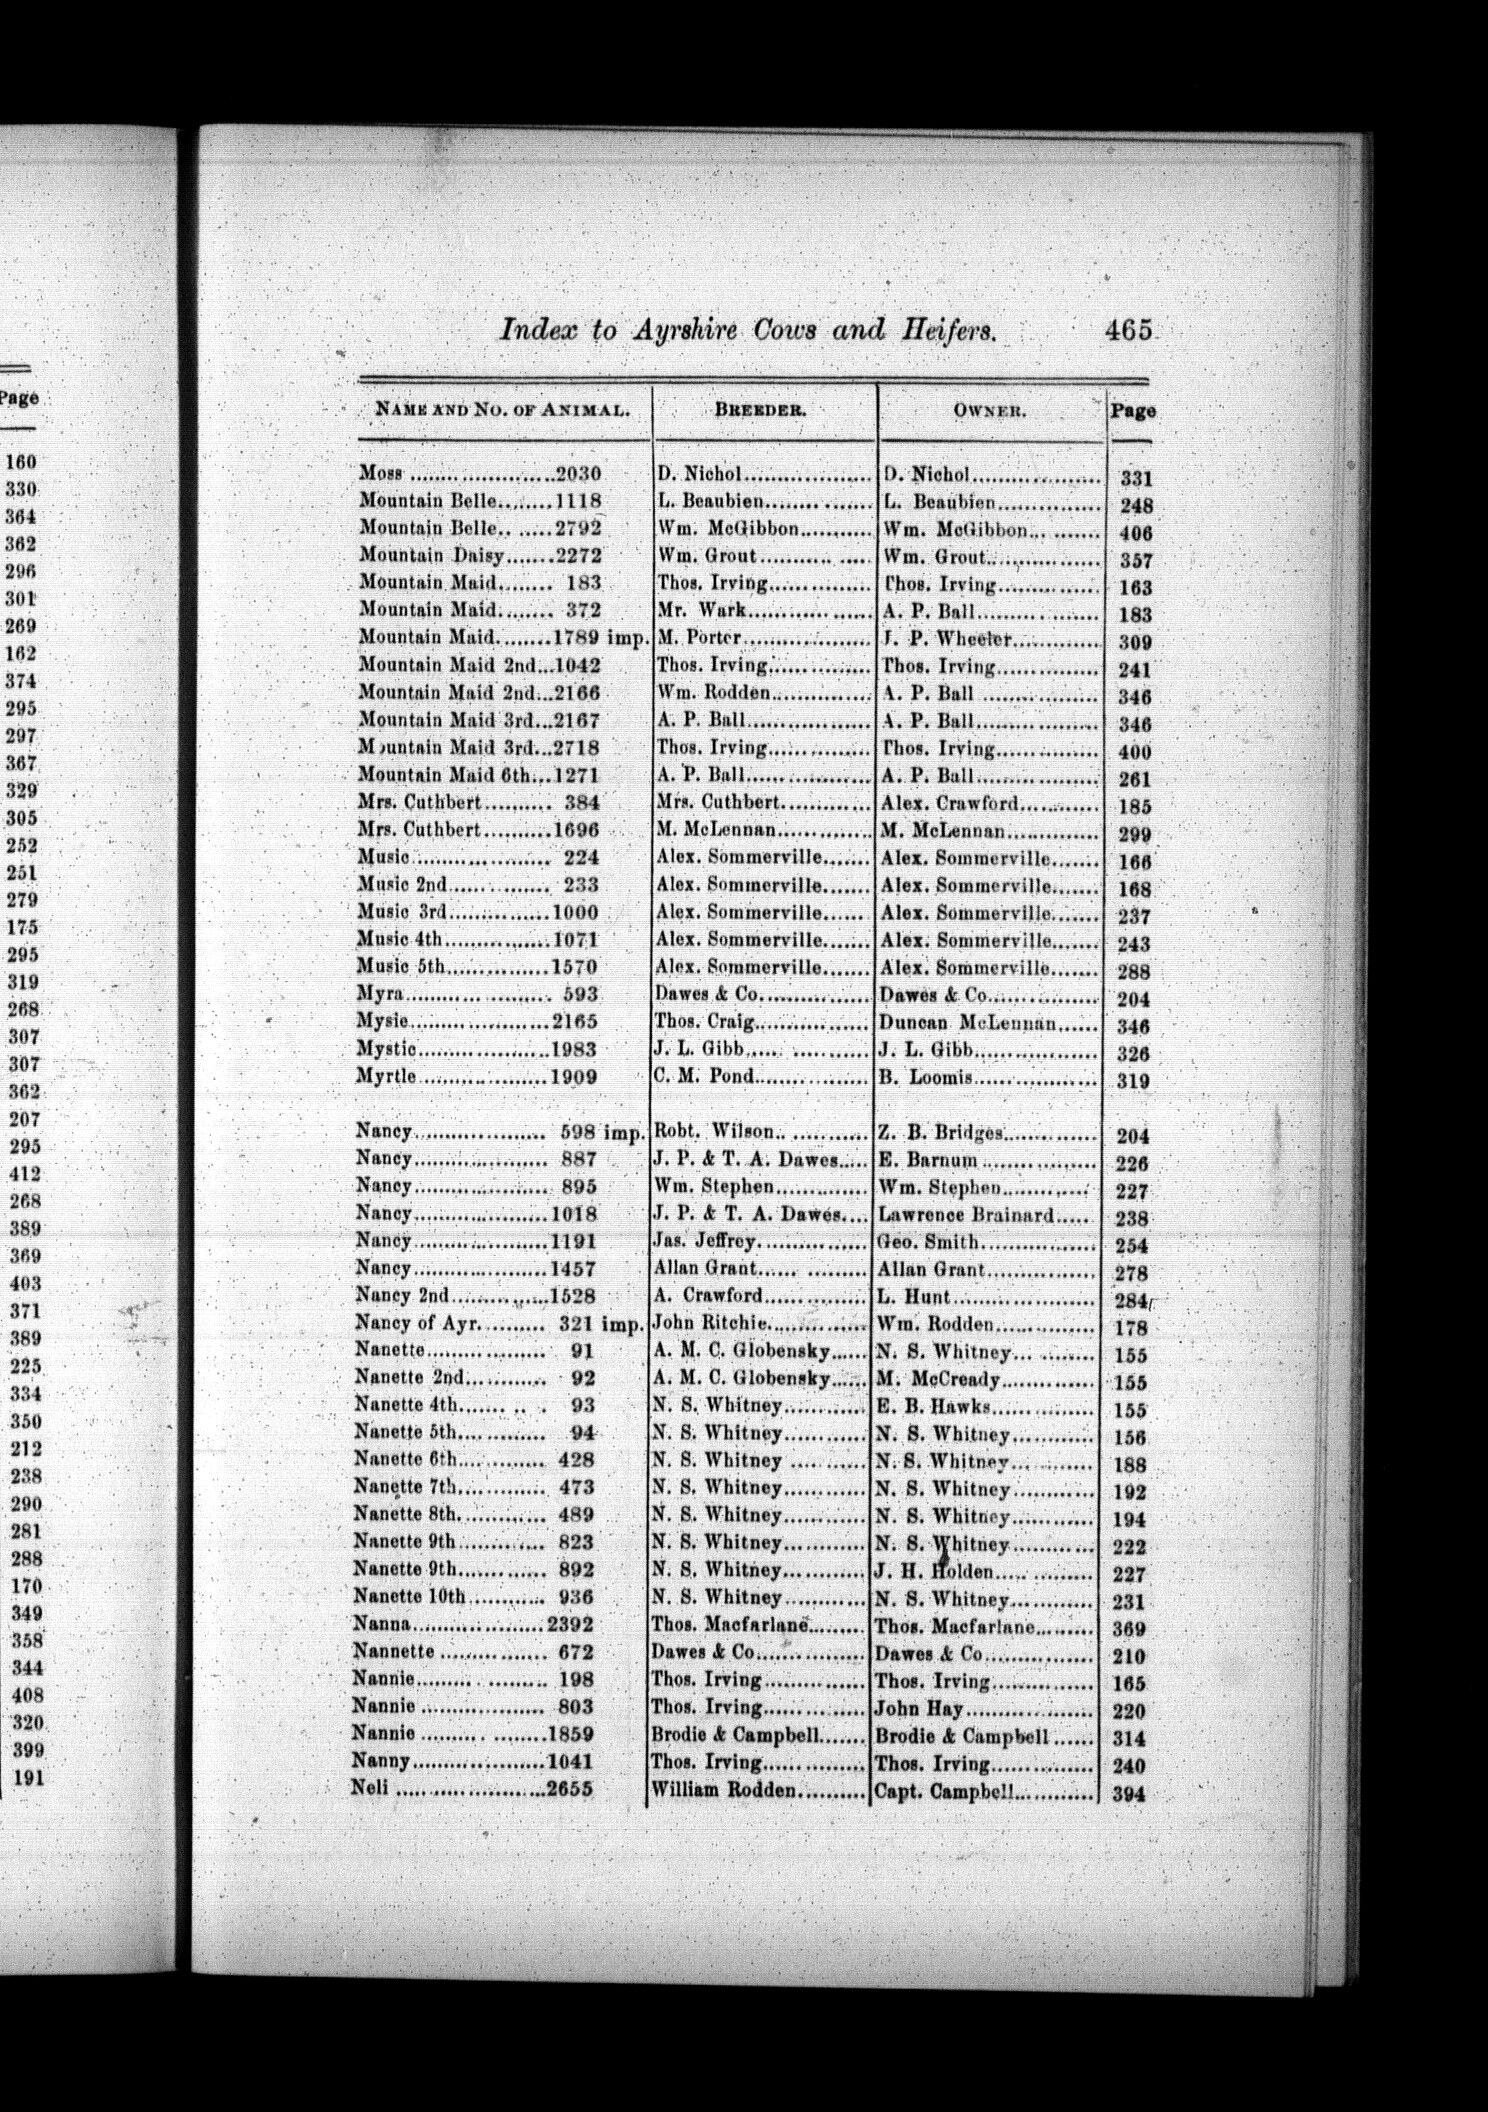 Page
160
330
364
362
296
301
269
162
374
295
297
367
329
305
252
251
279
175
295
319
268
307
307
362
207
295
412
268
389
369
403
371
389
225
334
350
212
238
290
281
288
170
349
358
344
408
320
399
191
Index to Ayrshire Cows and Heifers. 465
NAME AND NO. OF ANIMAL. BREEDER. OWNER. Page
Moss ......................2030 D. Nichol.................. D. Nichol.................. 331
Mountain Belle........1118 L. Beaubien............... L. Beaubien............... 248
Mountain Belle.. .....2792 Wm. McGibbon........... Wm. McGibbon... ....... 406
Mountain Daisy.......2272 Wm. Grout................ Wm. Grout................ 357
Mountain Maid........ 183 Thos. Irving............... Thos. Irving............... 163
Mountain Maid........ 372 Mr. Wark.................. A. P. Ball.................. 183
Mountain Maid........1789 imp. M. Porter................... J. P. Wheeler............. 309
Mountain Maid 2nd...1042 Thos. Irving............... Thos. Irving............... 241
Mountain Maid 2nd...2166 Wm. Rodden............... A. P. Ball ................. 346
Mountain Maid 3rd...2167 A. P. Ball.................. A. P. Ball.................. 346
Mountain Maid 3rd...2718 Thos. Irving............... Thos. Irving............... 400
Mountain Maid 6th...1271 A. P. Ball.................. A. P. Ball.................. 261
Mrs. Cuthbert.......... 384 Mrs. Cuthbert............. Alex. Crawford............ 185
Mrs. Cuthbert..........1696 M. McLennan.............. M. McLennan.............. 299
Music.................... 224 Alex. Sommerville....... Alex. Sommerville....... 166
Music 2nd............... 233 Alex. Sommerville....... Alex. Sommerville....... 168
Music 3rd...............1000 Alex. Sommerville...... Alex. Sommerville....... 237
Music 4th...............1071 Alex. Sommerville....... Alex. Sommerville....... 243
Music 5th...............1570 Alex. Sommerville....... Alex. Sommerville....... 288
Myra..................... 593 Dawes & Co................ Dawes & Co................ 204
Mysie....................2165 Thos. Craig................ Duncan McLennan...... 346
Mystic...................1983 J. L. Gibb.................. J. L. Gibb.................. 326
Myrtle...................1909 C. M. Pond................ B. Loomis.................. 319
Nancy................... 598 imp. Robt. Wilson.. ........... Z. B. Bridges.............. 204
Nancy................... 887 J. P. & T. A. Dawes..... E. Barnum................. 226
Nancy................... 895 Wm. Stephen.............. Wm. Stephen............. 227
Nancy...................1018 J. P. & T. A. Dawes.... Lawrence Brainard..... 238
Nancy...................1191 Jas. Jeffrey................ Geo. Smith................. 254
Nancy...................1457 Allan Grant...... ......... Allan Grant................ 278
Nancy 2nd..............1528 A. Crawford............... L. Hunt..................... 284
Nancy of Ayr.......... 321 imp. John Ritchie............... Wm. Rodden............... 178
Nanette................. 91 A. M. C. Globensky...... N. S. Whitney... ........ 155
Nanette 2nd............ 92 A. M. C. Globensky...... M. McCready.............. 155
Nanette 4th....... .. . 93 N. S. Whitney............ E. B. Hawks............... 155
Nanette 5th............. 94 N. S. Whitney............ N. S. Whitney............ 156
Nanette 6th............. 428 N. S. Whitney ........... N. S. Whitney............ 188
Nanette 7th............. 473 N. S. Whitney............ N. S. Whitney............ 192
Nanette 8th............. 489 N. S. Whitney............ N. S. Whitney............ 194
Nanette 9th............. 823 N. S. Whitney............ N. S. Whitney............ 222
Nanette 9th............. 892 N. S. Whitney............ J. H. Holden..... ......... 227
Nanette 10th........... 936 N. S. Whitney............ N. S. Whitney............ 231
Nanna...................2392 Thos. Macfarlane......... Thos. Macfarlane......... 369
Nannette ............... 672 Dawes & Co................ Dawes & Co................ 210
Nannie.................. 198 Thos. Irving............... Thos. Irving............... 165
Nannie .................. 803 Thos. Irving............... John Hay................... 220
Nannie .......... ........1859 Brodie & Campbell....... Brodie & Campbell ...... 314
Nanny...................1041 Thos. Irving............... Thos. Irving............... 240
Neli ......................2655 William Rodden.......... Capt. Campbell............ 394